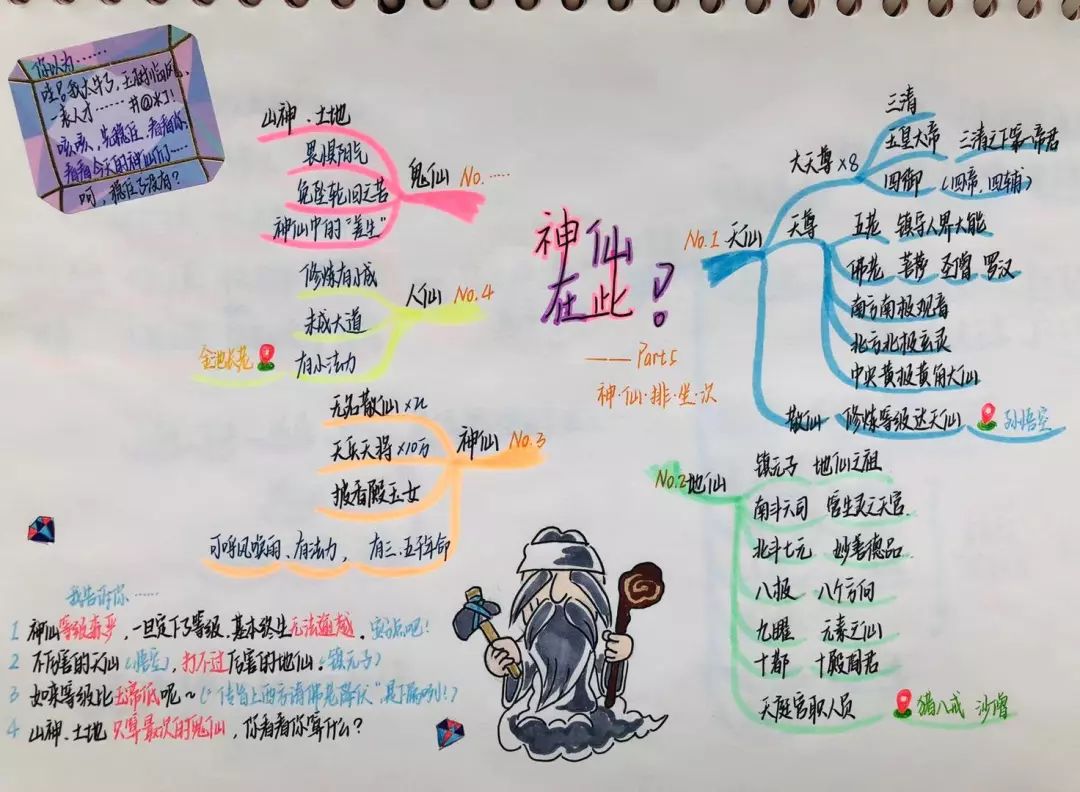 你以为……
哇!我太牛了,玉树临风、
一表人才……#@*了!
咳咳,先稳住,看看你,
看看今天的神仙们……
呵,稳住了没有?
神仙
在此?!
——Part5
神·仙·排·坐·次
No.1 天仙
大天尊×8
三清
玉皇大帝 三清之下第一帝君
四御 (四帝,四辅)
天尊
五老 镇导人界大能
佛老 菩萨 圣僧 罗汉
南方南极观音
北方北极玄灵
中央黄极黄角大仙
散仙 修炼等级达天仙 孙悟空
No.2 地仙
镇元子 地仙之祖
南斗六司 宫生灵之天官
北斗七元 妙善德品
八极 八个方向
九曜 元素之仙
十都 十殿阎君
天庭官职人员 猪八戒 沙僧
神仙 No.3
无名散仙×n
天兵天将×10万
披香殿玉女
可呼风唤雨、有法力, 有三、五千年命
人仙 No.4
修炼有小成
未成大道
有小法力
金池长老
鬼仙 No.……
山神、土地
畏惧阳气
免坠轮回之苦
神仙中的"差生"
我告诉你……
1 神仙等级森严,一旦定下了等级,基本终生无法逾越,
2 不厉害的天仙(悟空),打不过厉害的地仙(镇元子)
3 如来等级比玉帝低呢~("传旨上西方请佛老降伏"
4 山神、土地只算最次的鬼仙,你看看你算什么?